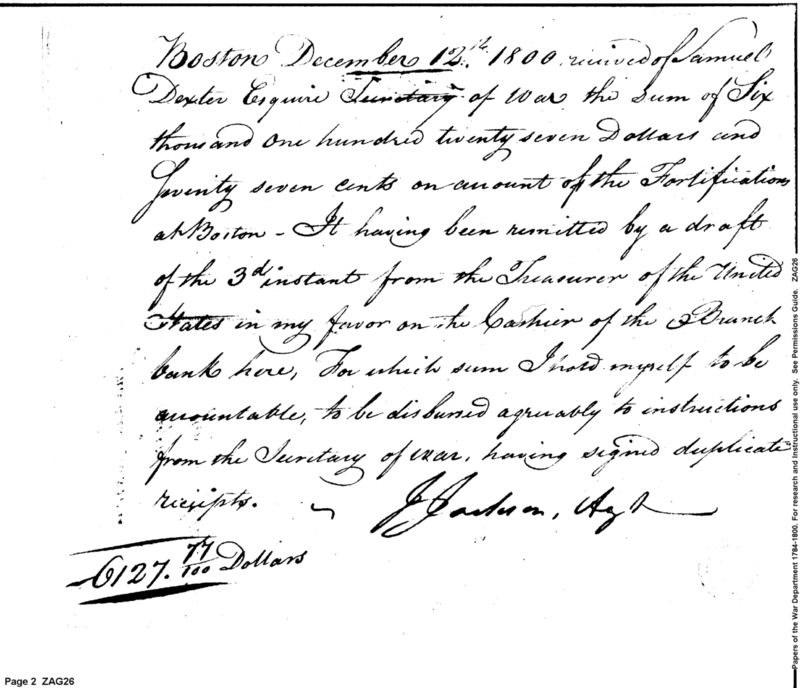 Boston December 12th. 1800 received of Samuel
Dexter Esquire Secretary of War the Sum of Six
thousand One hundred twenty seven Dollars and
Seventy seven cents on account of the Fortifications
at Boston - It having been remitted by a draft
of the 3d instant from the Treasurer of the United
States in my favor on the Cashier of the Branch
bank here, For which sum I hold myself to be
accountable, to be disbursed agreeably to instructions
from the Secretary of War, having signed duplicate
receipts. ~ J Jackson, Agt
6127. 77/100 Dollars
Page 2 ZAG26
Papers of the War Department 1784-1800. For research and instructional use only. See Permissions Guide. ZAG26